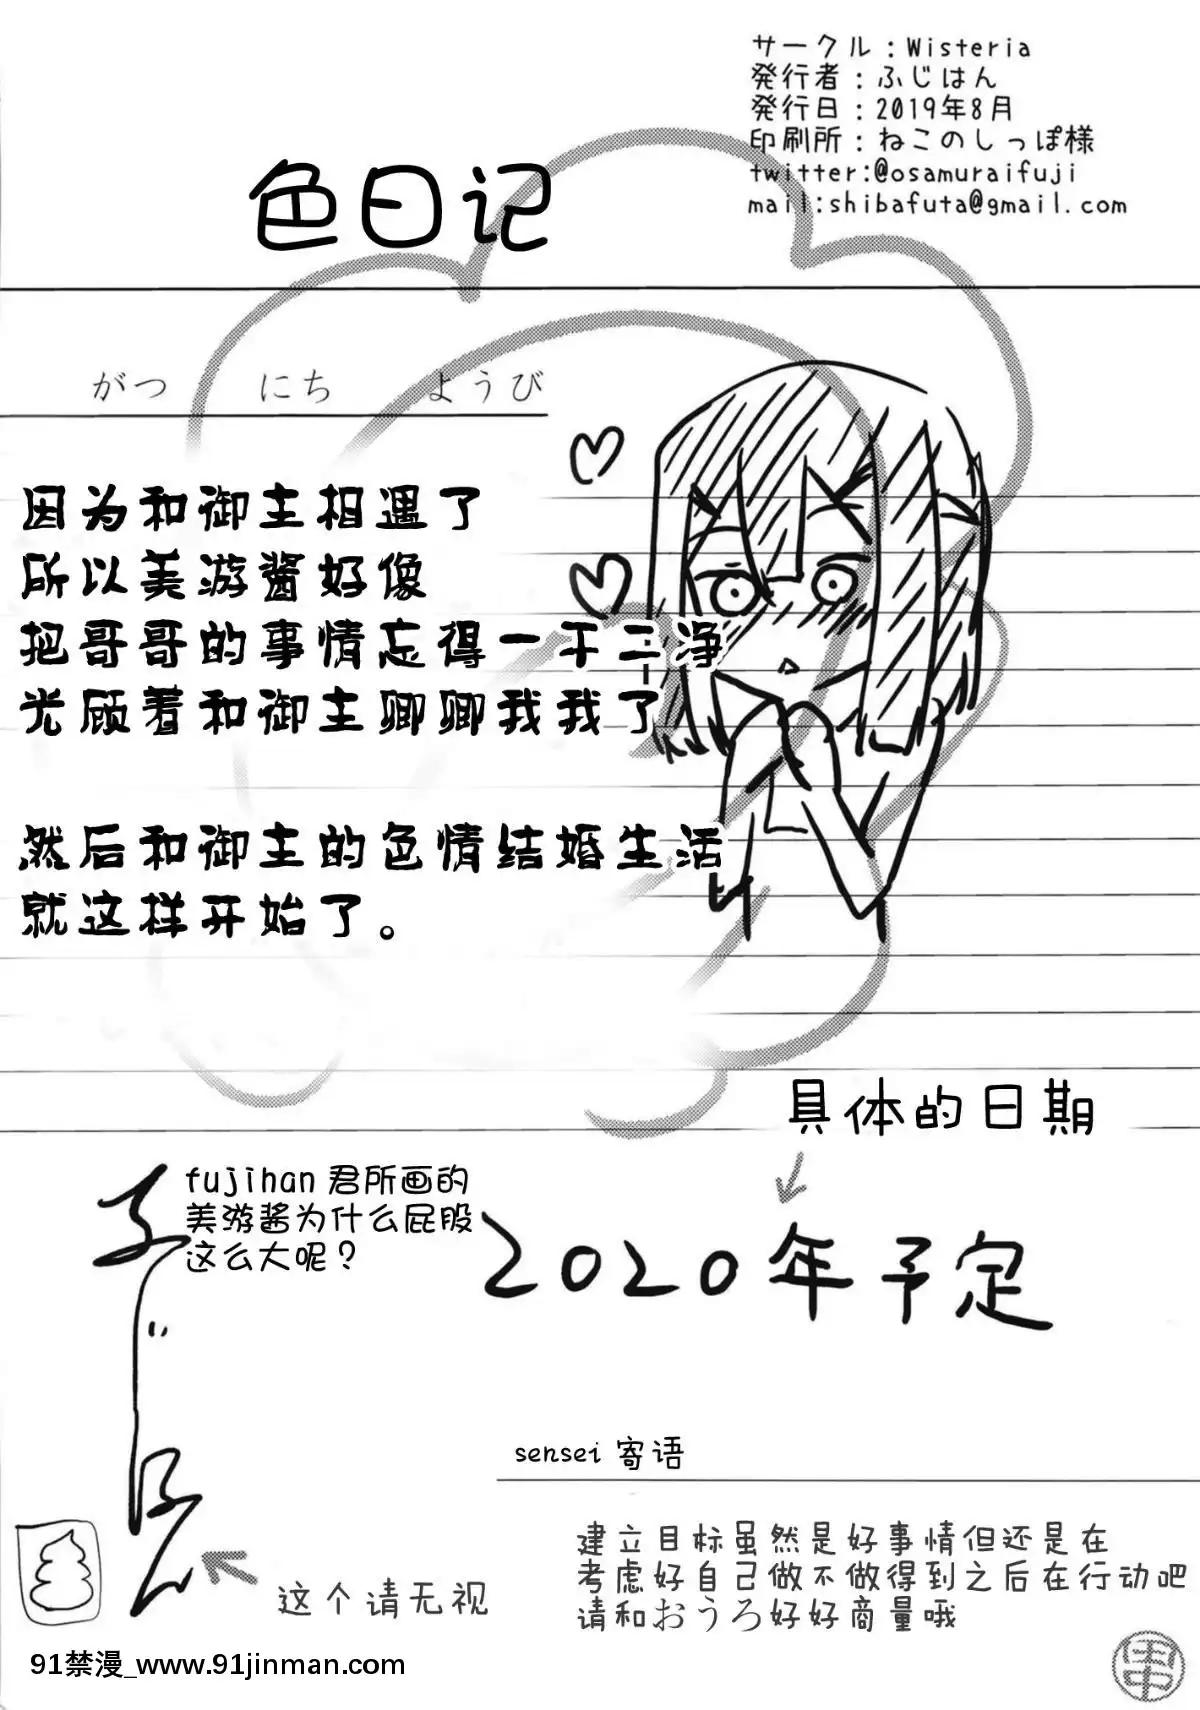 サークル：Wisteria
発行者：ふじはん
発行日：2019年8月
印刷所：ねこのしっぽ様
twitter:@osamuraifuji
mail:shibafuta@gmail.com
色日记
がつ にち ようび
因为和御主相遇了
所以美游酱好像
把哥哥的事情忘得一干二净
光顾着和御主卿卿我我了
然后和御主的色情结婚生活
就这样开始了。
具体的日期
fujihan 君所画的
美游酱为什么屁股
这么大呢？
2020年予定
sensei 寄语
建立目标虽然是好事情但还是在
考虑好自己做不做得到之后在行动吧
请和おうろ好好商量哦
这个请无视
91禁漫_www.91jinman.com